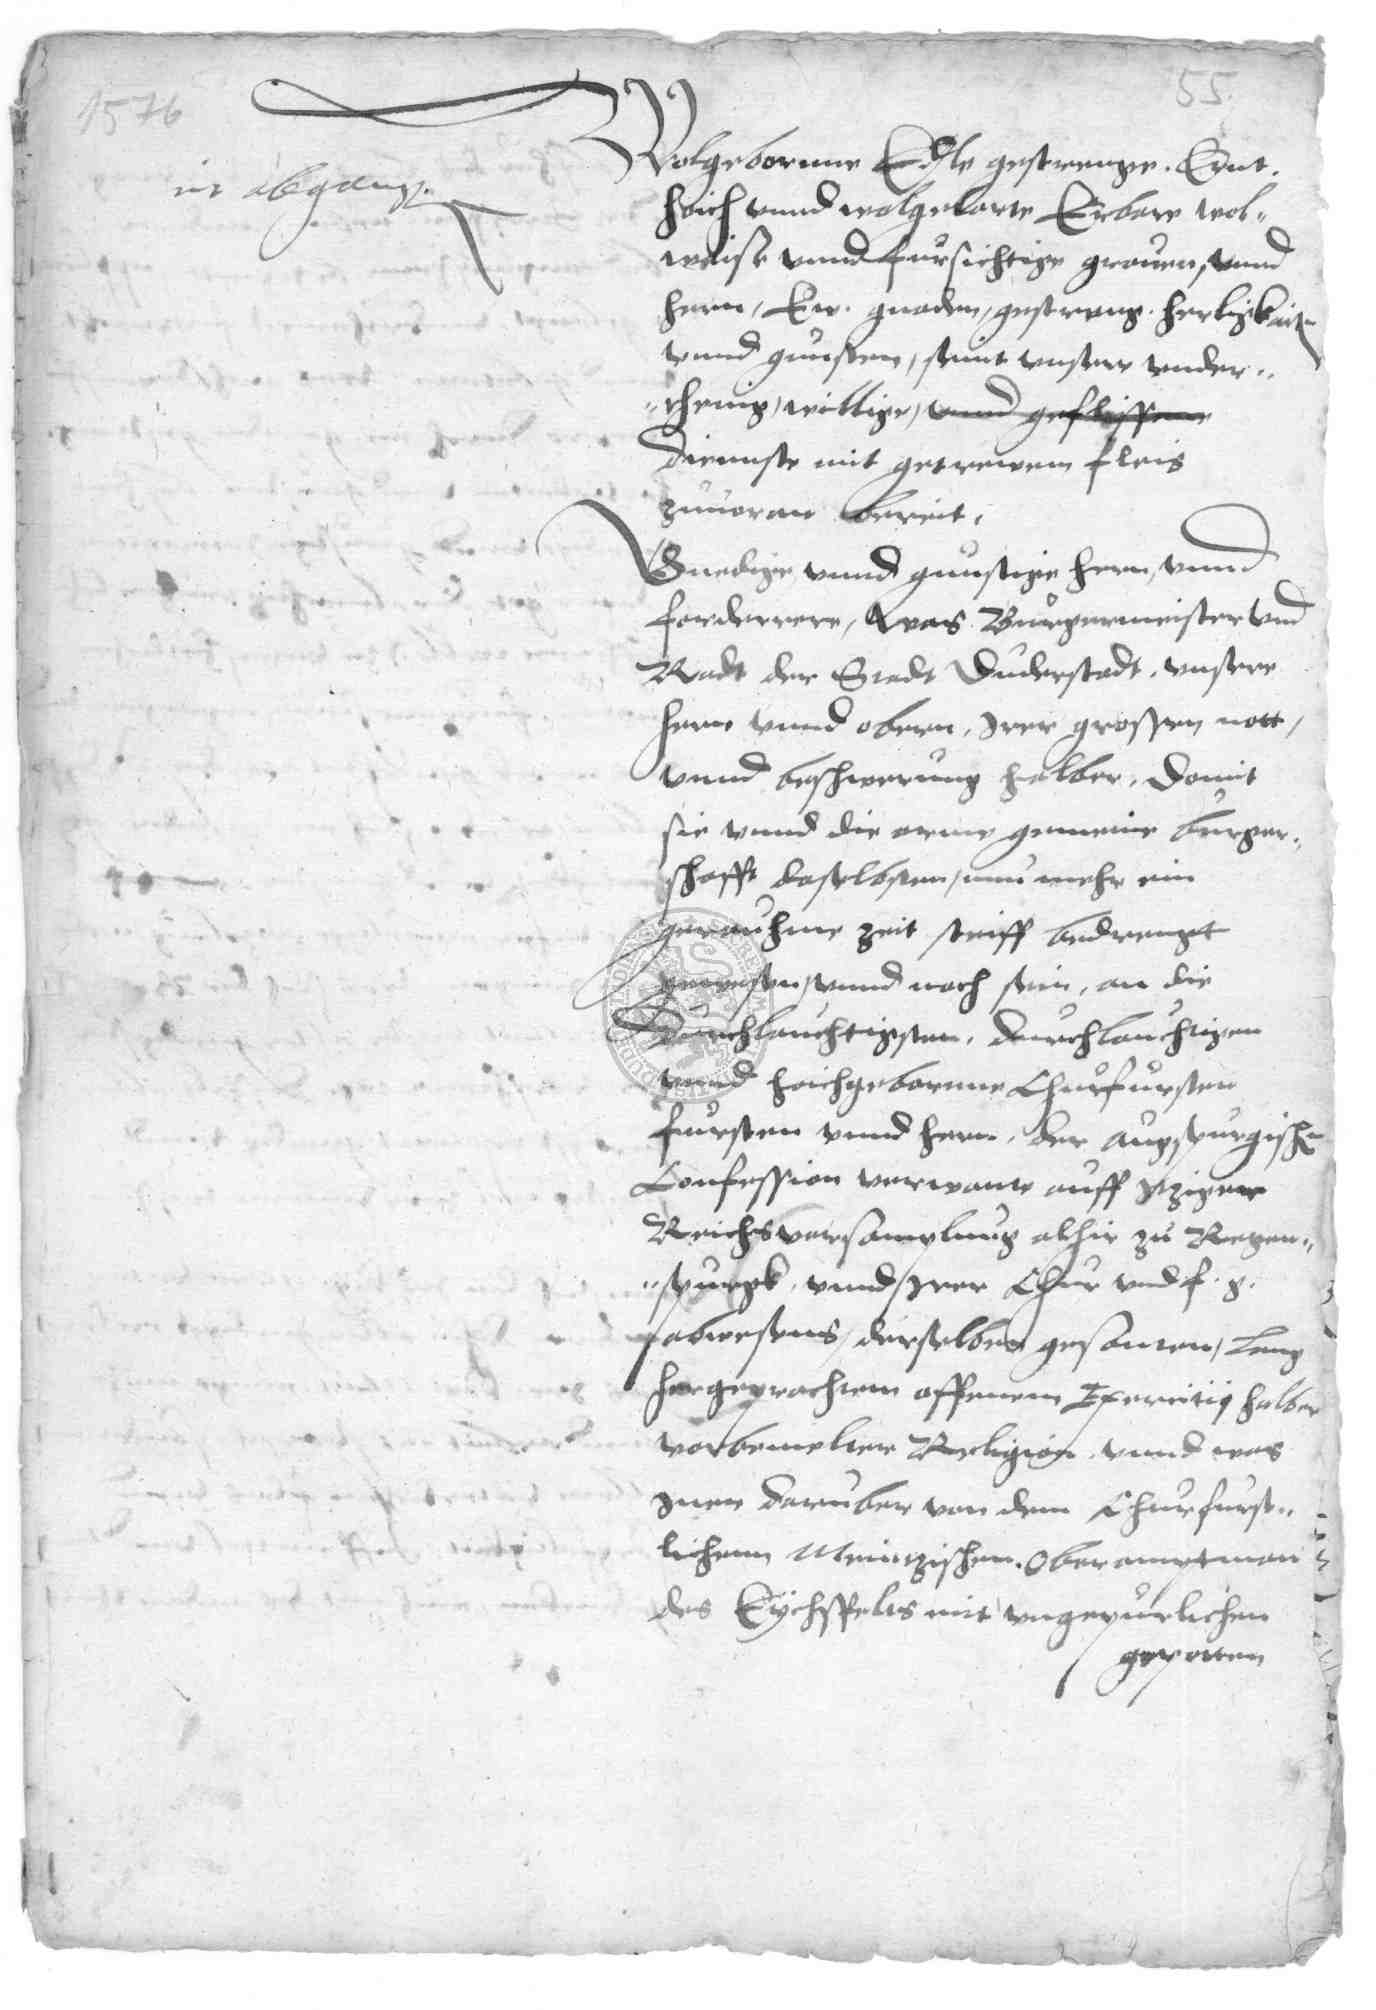 1576
55.
in abgang.
Wolgebornne Edle gestrenge. Ernt.
hoich vnnd wolgelarte Erbare wol„
weise vnnd fursichtige grauen, vnnd
hern, Ew. gnaden, gestreng. herligkeit
vnnd gunsten, seint vnsere vnder„
„thenig, willige, vnnd geflissene
diennste mit getrewem fleis
zuuoran bereit.
Gnedige vnnd gunstige hern, vnnd
forderrere, Was Burgermeister vnd
Radt der Stadt Duderstadt, vnsere
hern vnnd obern, Irer grossen nott,
vnnd beschwerung halber, Domit
sie vnnd die arme gemeine burger„
schafft daselbsten, nun mehr ein
geraühme zeit steiff bedrengt
gewesen, vnnd noch sein, an die
Durchlauchtigsten, durchlauchtigen
vnnd hoichgebornne Churfursten
fursten vnnd hern, der augspurgischen
Confession verwante auff Itziger
Reichsversamlung alhie zu Regen„
„spurgk, vnnd Irer Chur vnd f. g.
abwesens, derselben gesanten, lang
hergeprachten offenem Exercitij halber
vorbemelter Religion, vnnd was
Inen daruber von dem Churfurst„
lichenn Meintzischen Oberamptman
des Eychsfelts mit vngepurlichen
gepotten